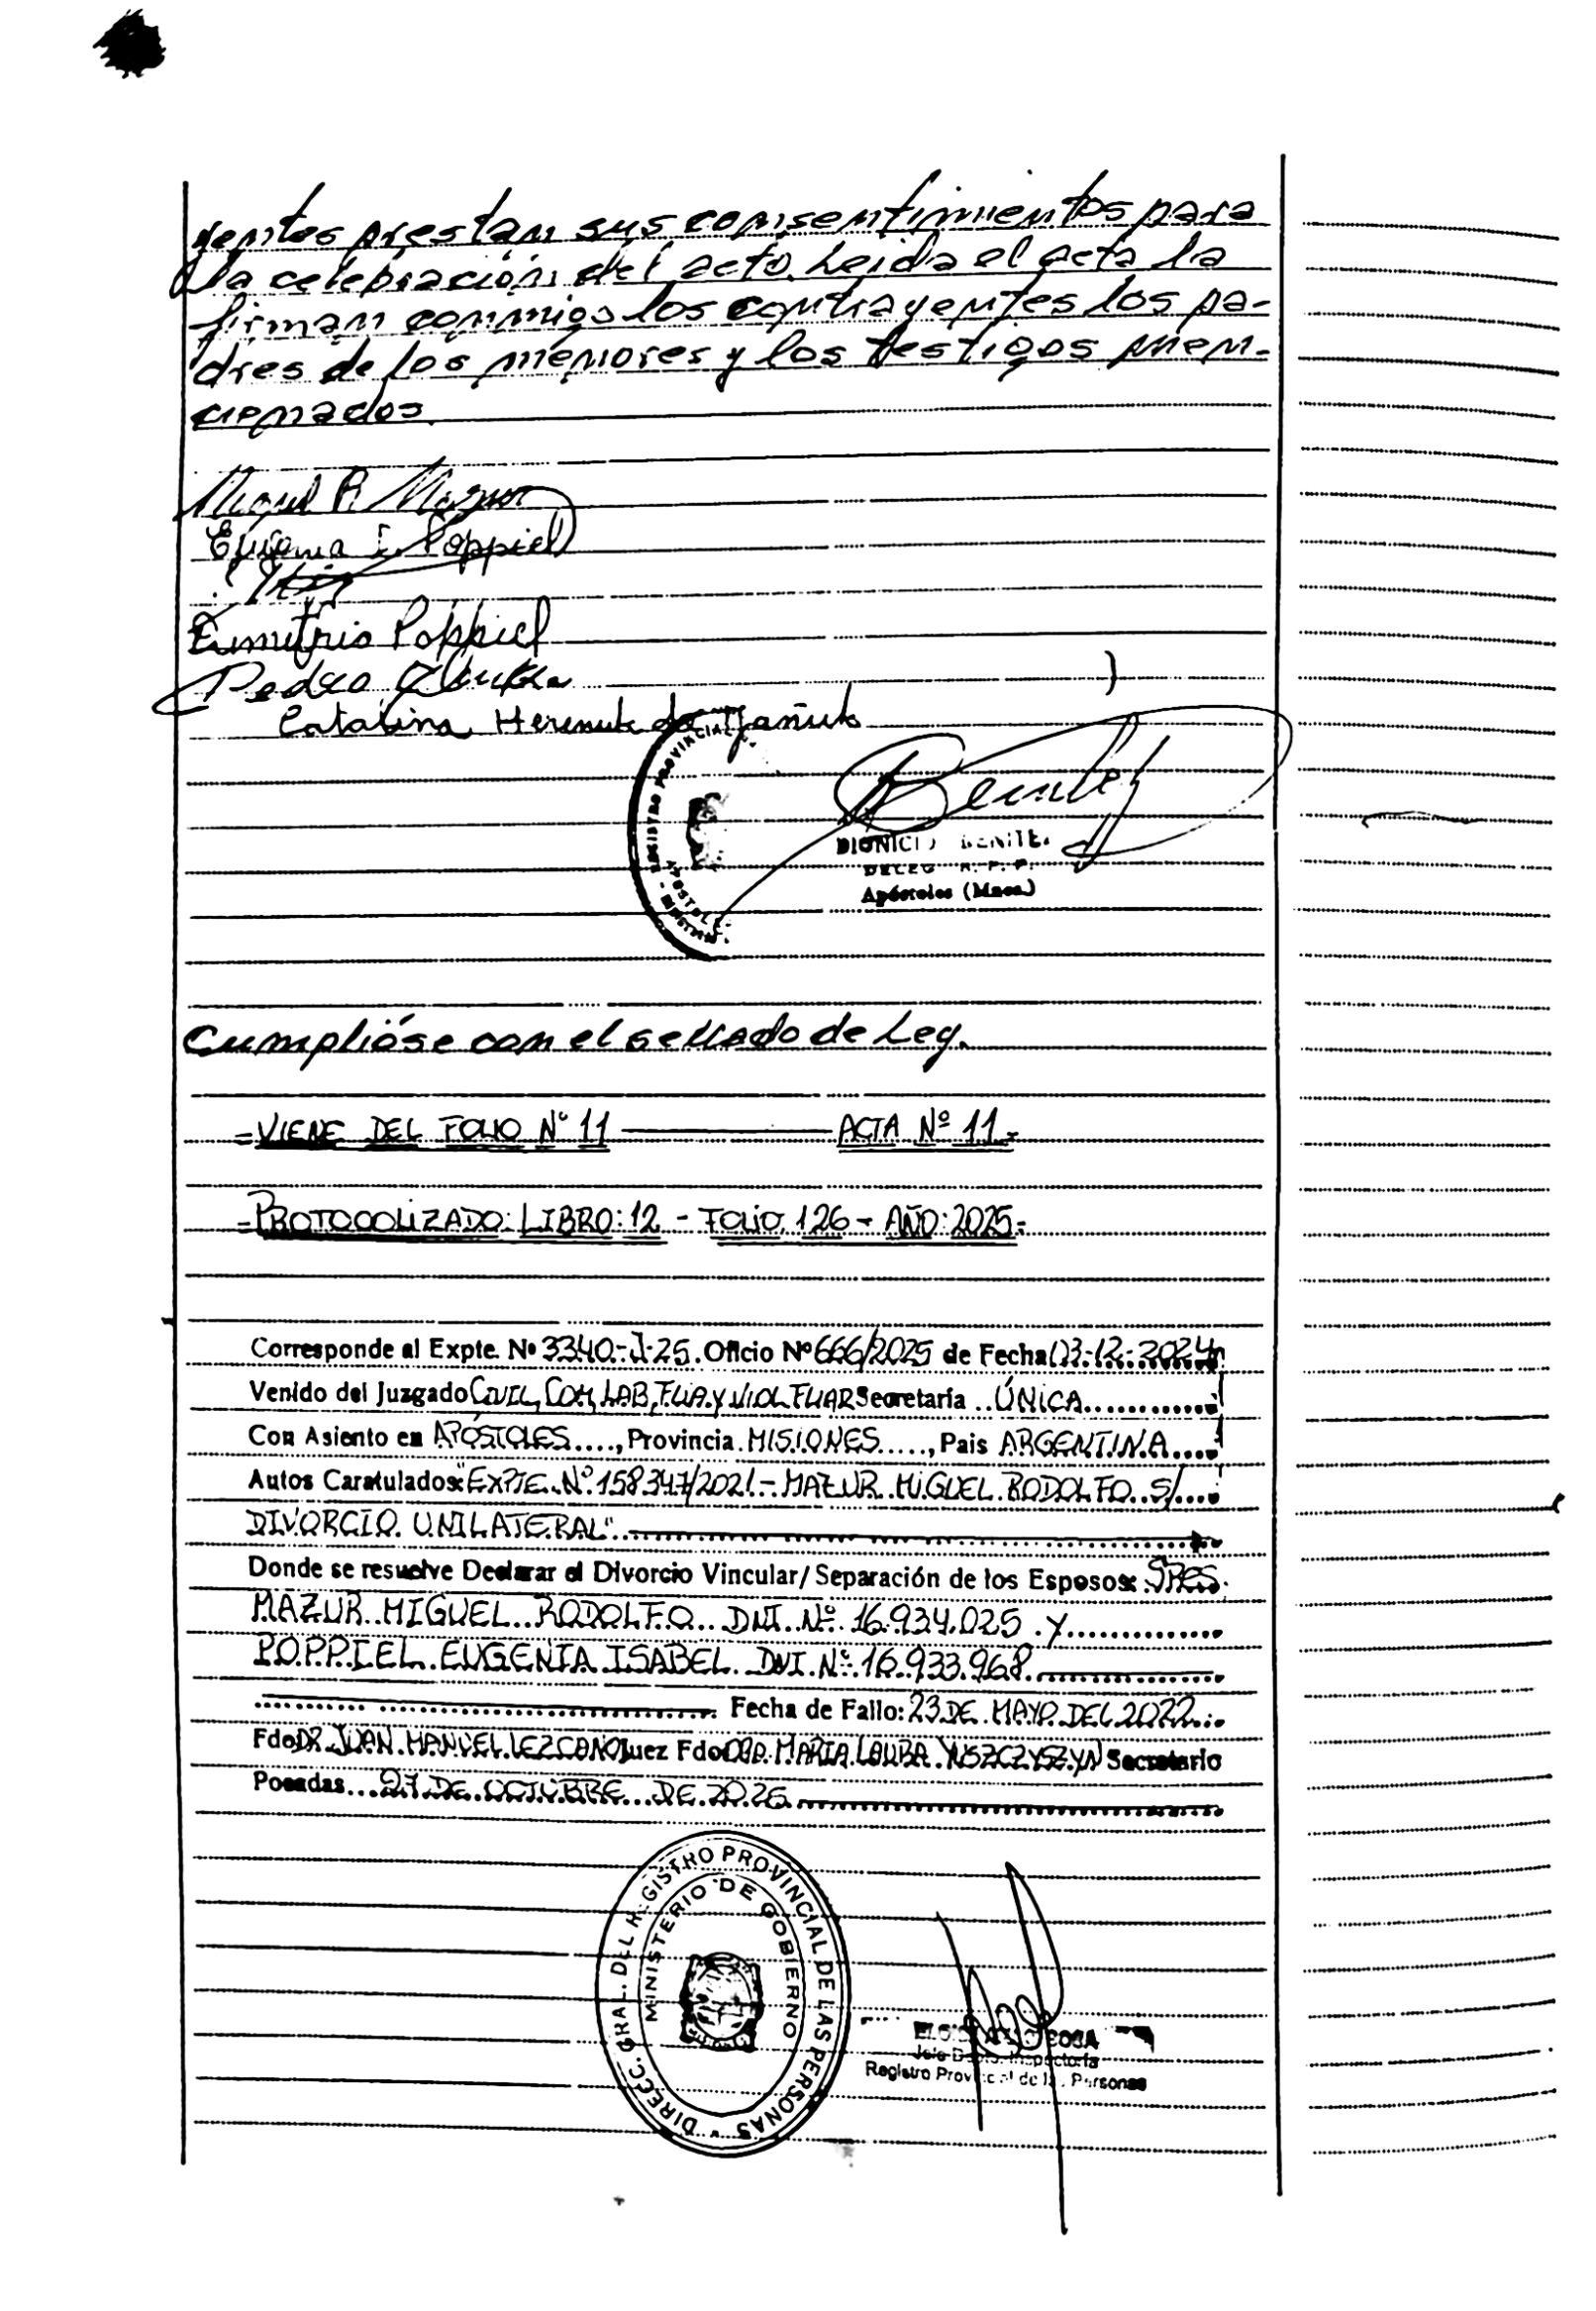 yentes prestan sus consentimientos para
la celebración del acto. Leida el acta la
firman conmigo los contrayentes los pa-
dres de los menores y los testigos men-
cionados.
Miguel R. Mazur
Eugenia I. Poppiel
Dimitrio Poppiel
Pedro
Catalina Hereniuk de
REGISTRO PROVINCIAL
APOSTOLES
MISIONES
DIONICIO BENITEZ
DELEG R. P. P.
Apóstoles (Mnes.)
Cumplióse con el sellado de Ley.
=VIENE DEL FOLIO Nº 11 ACTA Nº 11=
=PROTOCOLIZADO: LIBRO: 12 - FOLIO 126 - AÑO: 2025=
Corresponde al Expte. Nº 3340.-J-25. Oficio Nº 666/2025 de Fecha 03-12-2024
Venido del Juzgado CIVIL, COM, LAB, FLIA. Y VIOL FLIAR Secretaría ..ÚNICA............
Con Asiento en APÓSTOLES...., Provincia.MISIONES....., Pais ARGENTINA....
Autos Caratulados: "EXPTE. Nº 158347/2021.- MAZUR. MIGUEL. RODOLFO. S/....
DIVORCIO. UNILATERAL"
Donde se resuelve Declarar el Divorcio Vincular/ Separación de los Esposos: SRES.
MAZUR..MIGUEL..RODOLFO.. DNI. Nº. 16.934.025 .Y..............
POPPIEL.EUGENIA.ISABEL. DNI. Nº. 16.933.968.
Fecha de Fallo: 23 DE. MAYO. DEL 2022.
Fdo DR. JUAN. MANUEL LEZCANO Juez Fdo DRA. MARIA. LAURA. YUSZCZYSZYN Secretario
Posadas... 27 DE. OCTUBRE... DE. 2025
DIRECC. GRAL. DEL REGISTRO PROVINCIAL DE LAS PERSONAS
MINISTERIO DE GOBIERNO
SOSA
Jefe Dpto. Inspectoría
Registro Provincial de las Personas